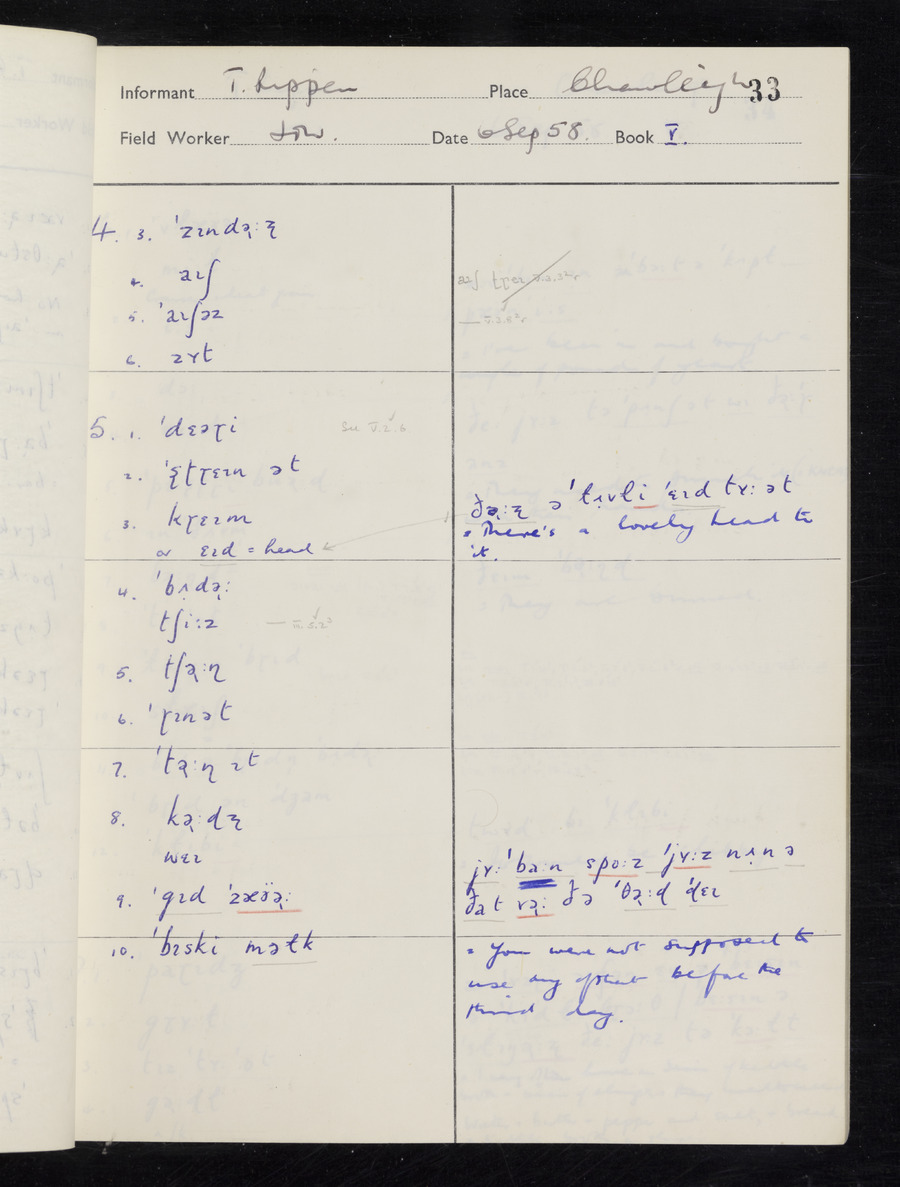 Informant T. Lippen Place Chawleigh 33
Field Worker Date 6 Sep 58. Book V.
4. 3. ˈzɪndəː
4. aɪʃ
aɪʃ tɽeɪ
5. ˈaɪʃəz
6. ɪʏt
5. 1. ˈdɛəɽi See V.2.6
2. ət
3. kɽɛɪm
or ɛɪd = head
ðəːɻ ə ˈlʌvli ˈɛɪd tʏː ət
= There's a lovely head to
it.
4. ˈbʌdəː
tʃiːz
5. tʃəːɳ
6. ˈɽɪnət
7. ˈtəːɳ ɪt
8. kəːdʐ
wɛɪ
9. ˈgɪd
10. ˈbɪski məɫk
jʏː ˈbaːn spoːz ˈjʏːz nʌn ə
ðat vəː ðə ˈθəːɖ ˈdɛɪ
= You were not supposed to
use any of that before the
third day.